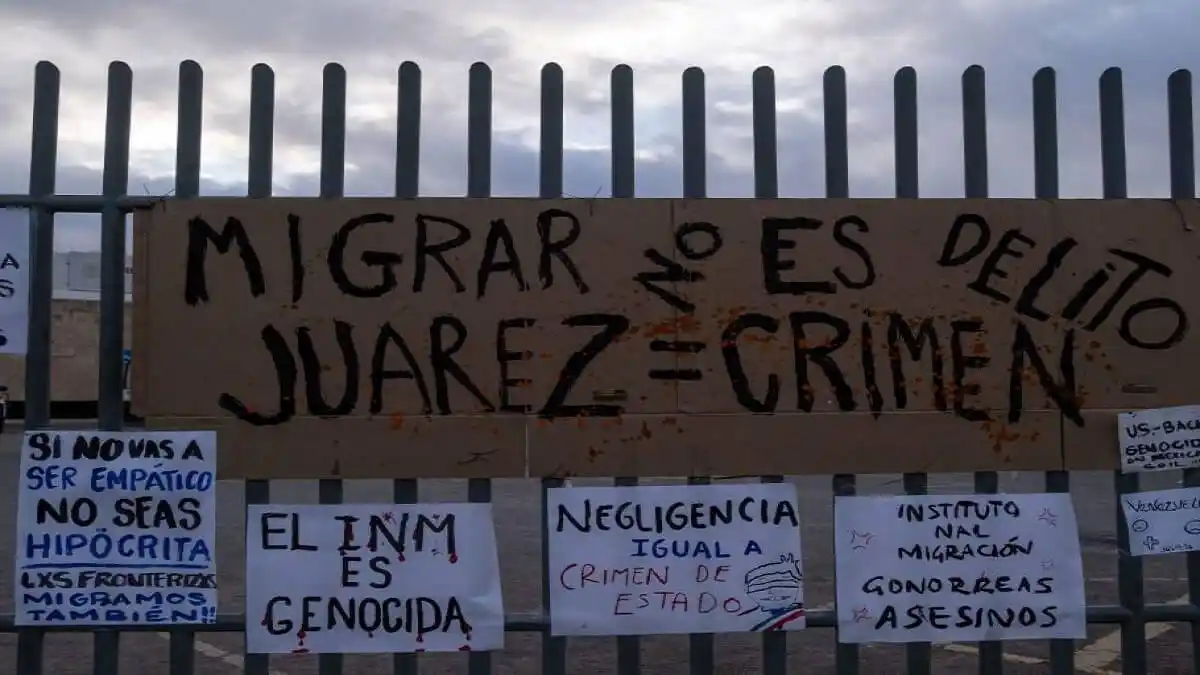 A
S
MIGRAR NO ES DELITO
JUAREZ = CRIMEN
SI NO VAS A
SER EMPÁTICO
NO SEAS
HIPÓCRITA
LXS FRONTERIZXS
MIGRAMOS
TAMBIÉN!!
EL INM
ES
GENOCIDA
NEGLIGENCIA
IGUAL A
CRIMEN DE
ESTADO
INSTITUTO
NAL
MIGRACIÓN
GONORREAS
ASESINOS
US-BACK
GENOCID
ON MEXICA
SOIL
VENEZUEL